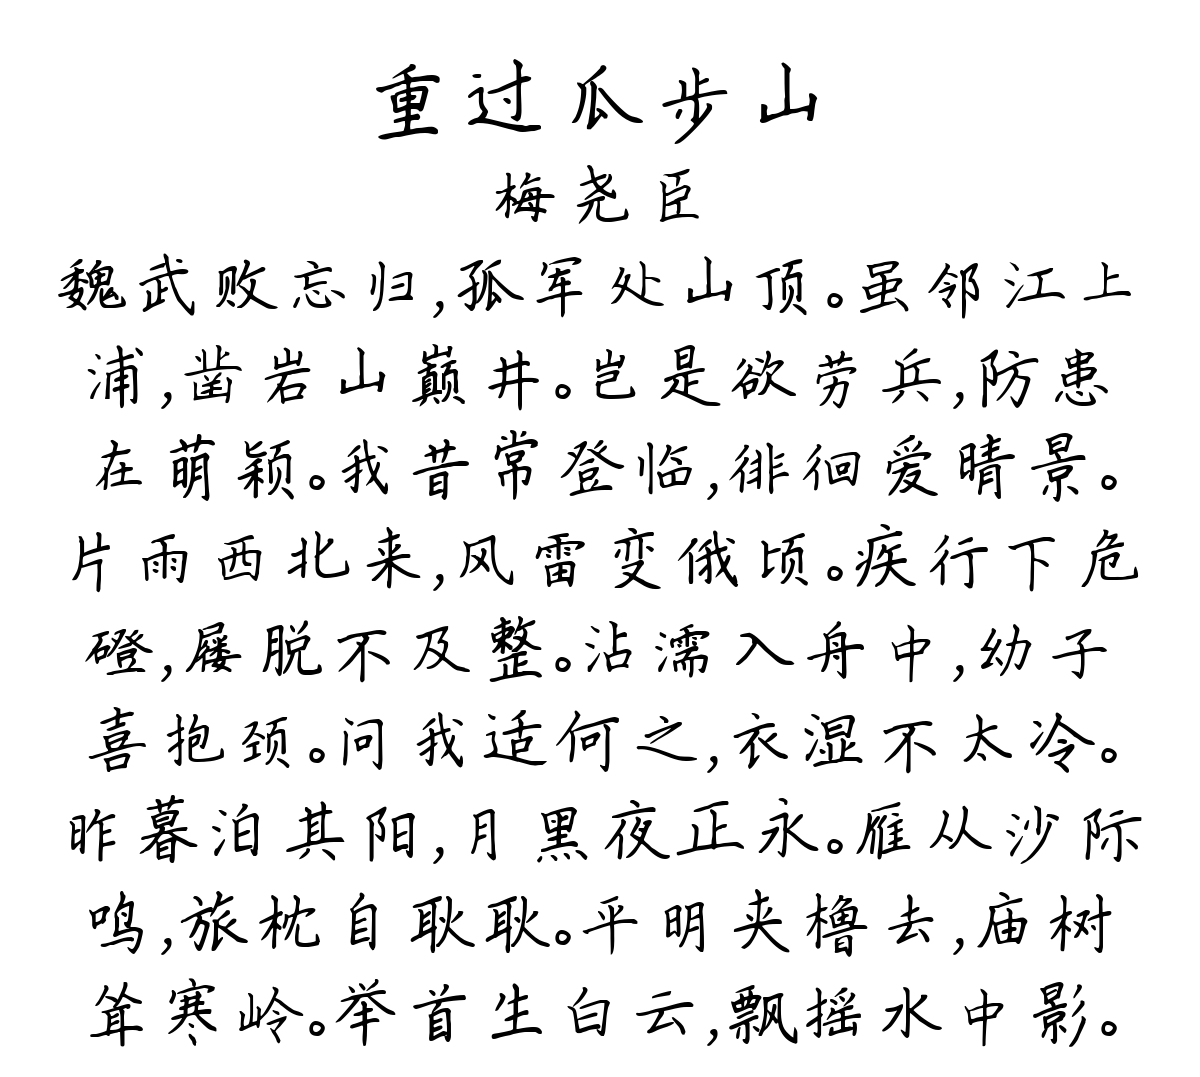 重过瓜步山
梅尧臣
魏武败忘归,孤军处山顶。虽邻江上
浦,凿岩山巅井。岂是欲劳兵,防患
在萌颖。我昔常登临,徘徊爱晴景。
片雨西北来,风雷变俄顷。疾行下危
磴,屦脱不及整。沾濡入舟中,幼子
喜抱颈。问我适何之,衣湿不太冷。
昨暮泊其阳,月黑夜正永。雁从沙际
鸣,旅枕自耿耿。平明夹橹去,庙树
耸寒岭。举首生白云,飘摇水中影。